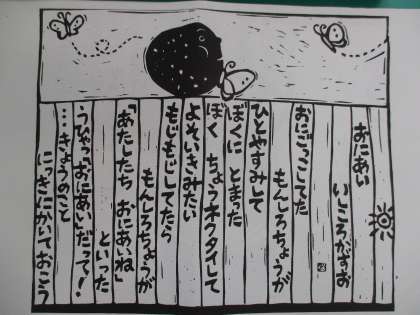 おにあい
いしころかずお
おにごっこしてた
もんしろちょうが
ひとやすみして
ぼくに とまった
ぼく ちょうネクタイして
よそいきみたい
もじもじしてたら
もんしろちょうが
「あたしたち おにあいね」
といった
うひゃっ「おにあい」だって!
…きょうのこと
にっきにかいておこう